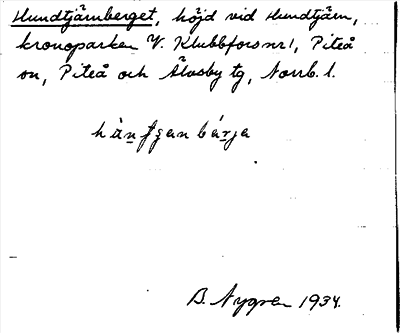 Hundtjärnberget, höjd vid Hundtjärn,
kronoparken V. Klubbfors nr 1, Piteå
sn, Piteå och Älvsby tg, Norrb. l.
B. Nygren 1934.